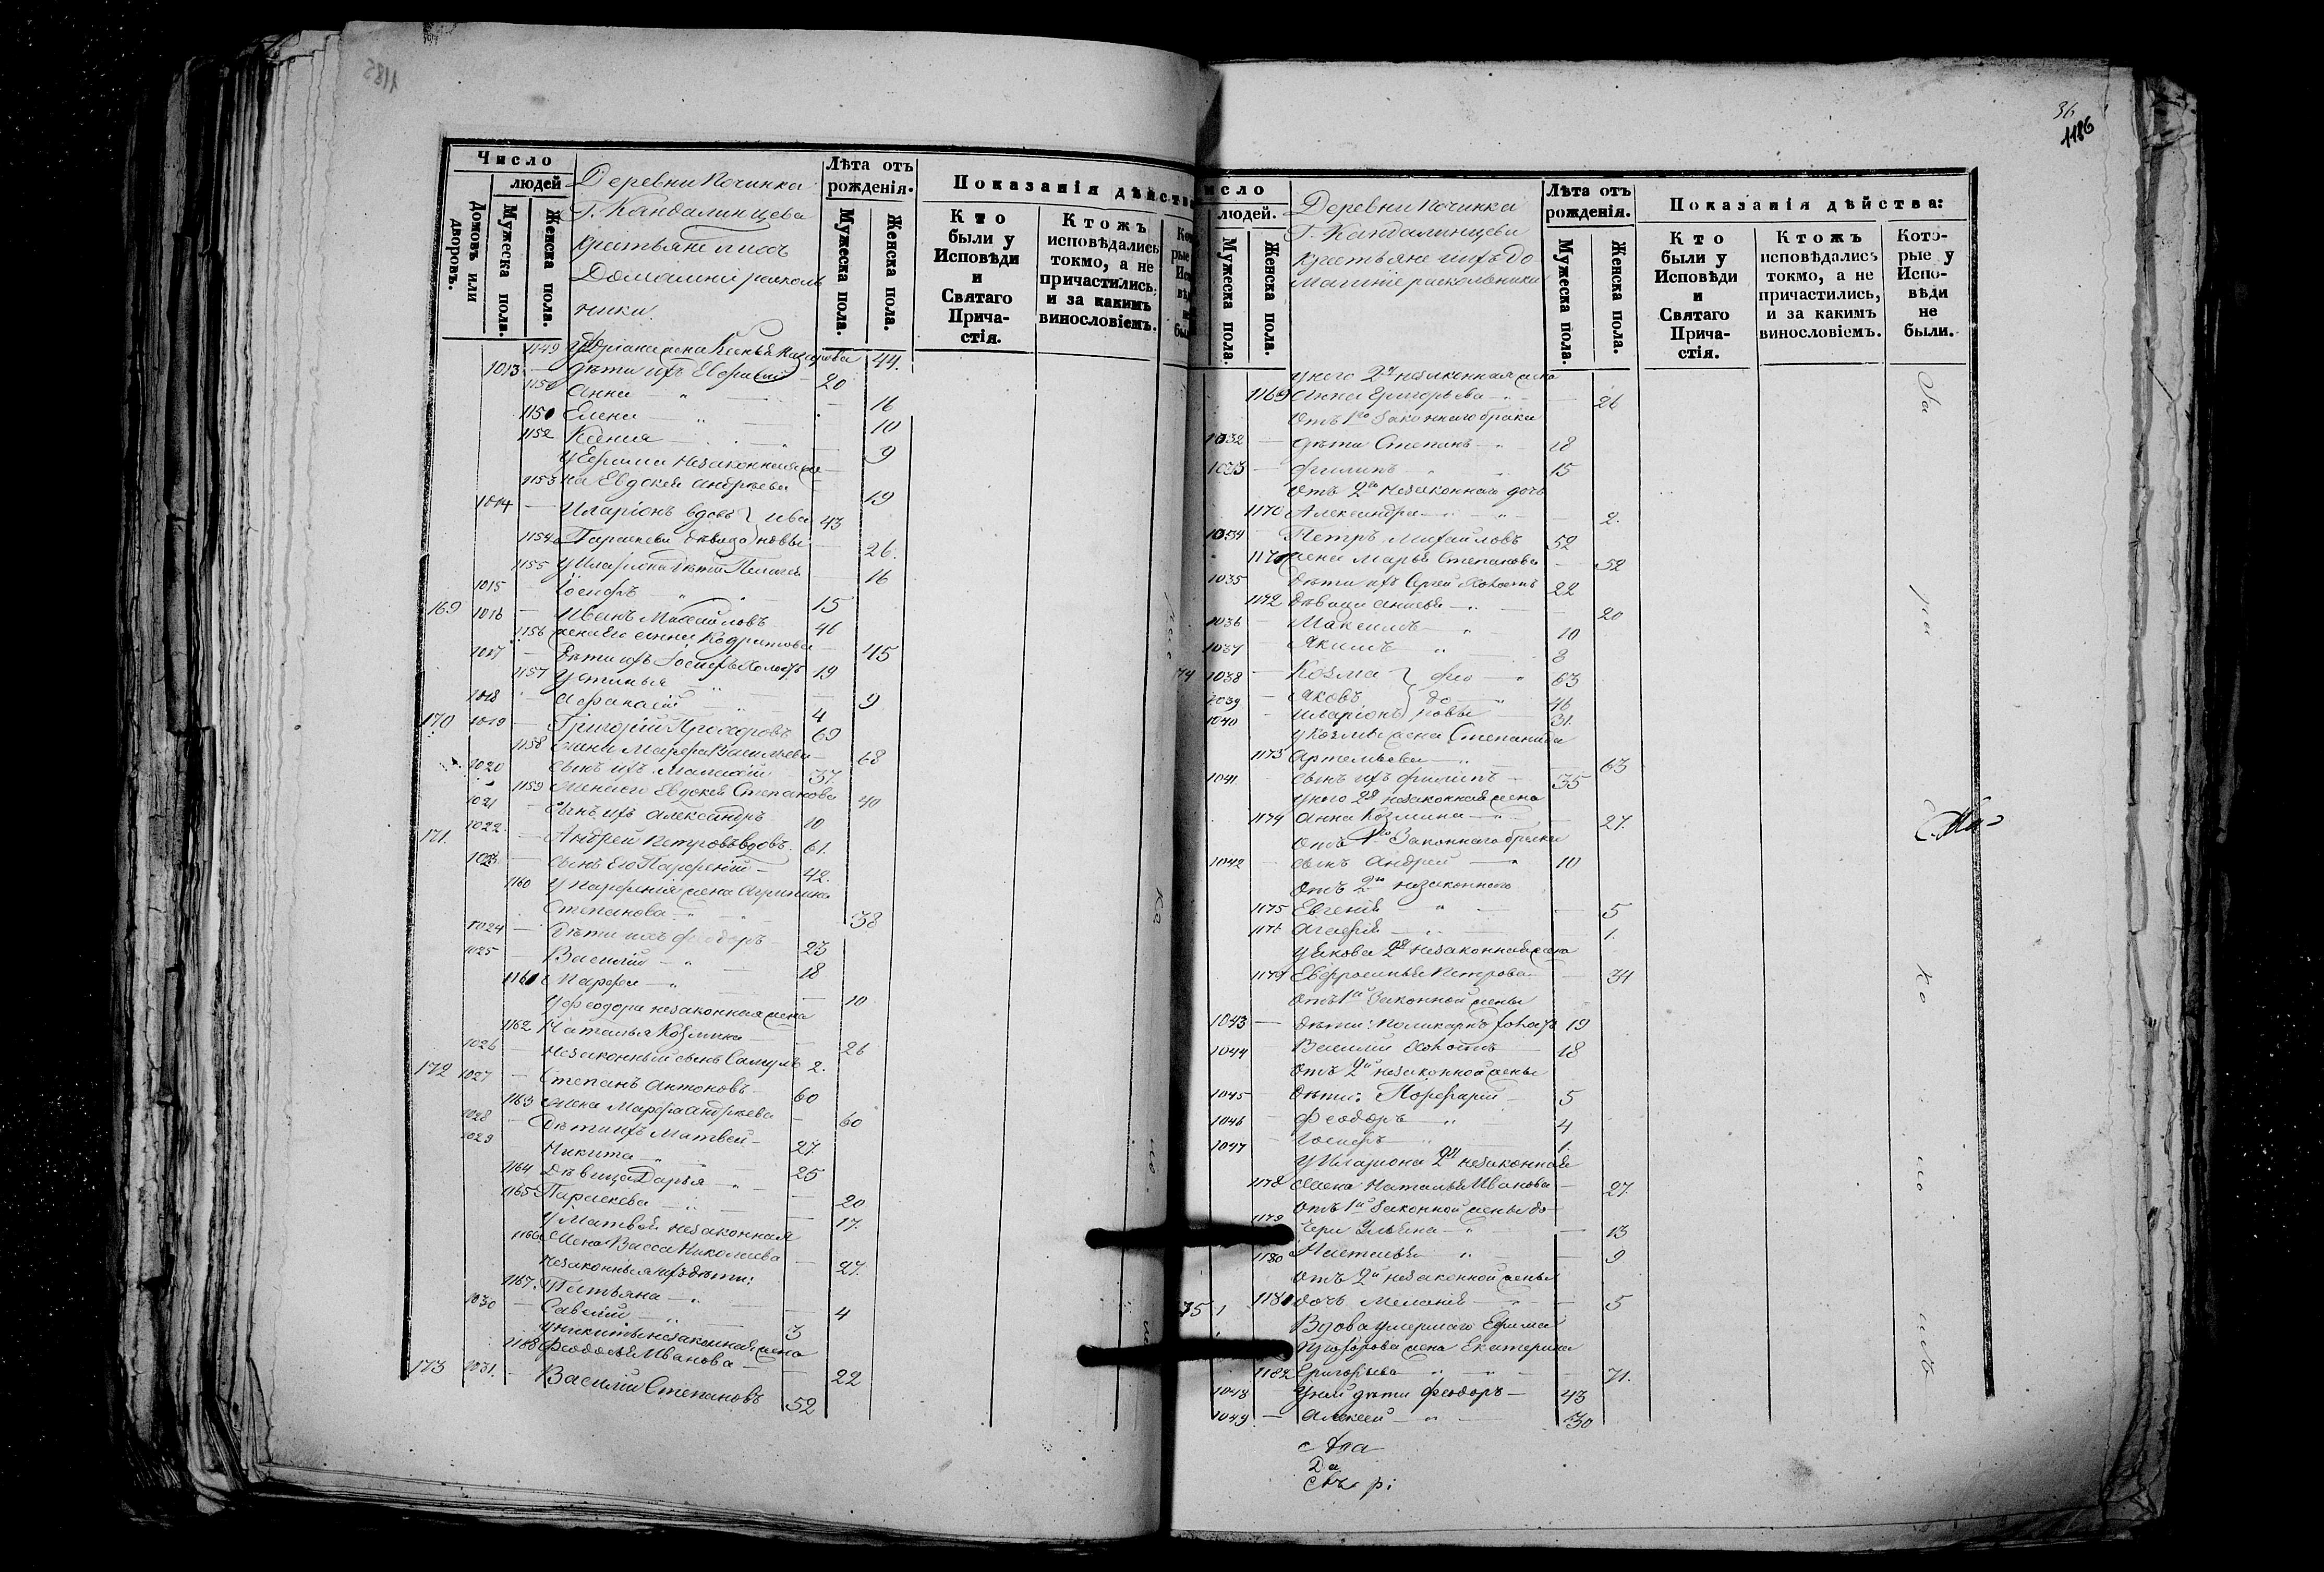 1185
Число
людей
Домовъ или дворовъ.
Мужеска пола.
Женска пола.
Деревни Починка
Г. Кандалинцева
крестьяне и ихъ
Домашніе расколь
ники.
Лѣта отъ рожденія.
Мужеска пола.
Женска пола.
Показанія дѣйств
Кто были у Исповѣди и Святаго Прича- стія.
Ктожъ исповѣдались токмо, а не причастились, и за какимъ винословіемъ.
1149 жена Ксенья 44.
1013 — дѣти ихъ Ефримъ 20
1150 Анна — " — 16
1151 Елена — " — 10
1152 Ксения — " — 9
у Ефрима незаконная же-
1153 на Евдокея Андреева 19
1014 — Иларіонъ вдовъ 43
1154 Параскева дѣвица 26.
Ивановы
1155 у Иларіона дѣти Пелагея 16
1015 Іосифъ — " — 15
169 1016 — Иванъ Михайловъ 46
1156 жена его Анна Кодратова 45
1017 — Дѣти ихъ Іосифъ холостъ 19
1157 Устинья " — 9
1018 Афанасій — " — 4
170 1019 — Григорій Прохоровъ 69
1158 Жена Марфа Васильева 68
1020 Сынъ ихъ Малахій 37.
1159 Жена его Евдокея Степанова 40
1021 — Сынъ ихъ Александръ 10
171. 1022. — Андрей Петровъ вдовъ 61.
1023 — Сынъ его Парфеній — 42.
1160 У Парфенія жена Агрипина
Степанова — " — 38
1024 — Дѣти ихъ Феодоръ 23
1025 — Василій — " — 18
1161 Марфа — " — 10
у Феодора незаконная жена
1162 Наталья Козмина 26
1026 — Незаконный сынъ Самуилъ 2.
172 1027 — Степанъ Антоновъ 60
1163 Жена Марфа Андреева — 60
1028 — Дѣти ихъ Матвей — 27.
1029 Никита — " 25
1164 Дѣвица Дарья — " — 20
1165 Параскева — " — 17.
У Матвея незаконная
1166 Жена Васса Николаева 27.
Незаконныя ихъ дѣти:
1167. Татьяна — " — 4
1030 — Савелій — " — 3
у Никиты незаконная жена
1168 Феодосья Иванова — 22
173 1031. — Василій Степановъ 52
36
1186
исло
людей.
Мужеска пола.
Женска пола.
Деревни Починка
Г. Кандалинцева
Крестьяне и ихъ до
машніе раскольники
Лѣта отъ рожденія.
Мужеска пола.
Женска пола.
Показанія дѣйства:
Кто были у Исповѣди и Святаго Прича- стія.
Ктожъ исповѣдались токмо, а не причастились, и за какимъ винословіемъ.
Кото- рые у Испо- вѣди не были.
у него 2я незаконная жена
1169 Анна Григорьева — " — 26
Отъ 1го Законнаго брака
1032 — дѣти Степанъ — " 18
1033 — Филипъ — " 15
Отъ 2го незаконнаго дочь
1170 Александра — " — 2.
1034 Петръ Михайловъ 52
1171 жена Марья Степанова — 52
1035 Дѣти ихъ Сергей холостъ 22
1172 Дѣвица Анисья — " — 20
1036 — Максимъ " — 10
1037 Якимъ " 8
174 1038 — Козма 63
1039 — Яковъ 46
1040 — Иларіонъ 31.
Фео
до
ровы
у Козмы жена Степанида
1173 Артемьева — " 63
1041. Сынъ ихъ Филипъ — 35
у него 2я незаконная жена
1174 Анна Козмина — " — 27.
Отъ 1го Законнаго брака
1042 — сынъ Андрей — 10
Отъ 2го незаконнаго
1175 Евгенія — " — 5
1176 Агафія — " — 1.
у Якова 2я незаконная жена
1177 Евфросинья Петрова — 34
Отъ 1й Законной жены
1043 — дѣти: Поликарпъ холостъ 19
1044 Василій холостъ 18
Отъ 2й незаконной жены
1045 дѣти: Порфирій — 5
1046 — Феодоръ — " 4
1047 — Іосифъ — " 1.
У Илариона 2я незаконная
1178 Жена Наталья Иванова — 27.
Отъ 1й Законной жены до-
1179 чери Ульяна — " — 13
1180 Настасья " — 9
Отъ 2й незаконной жены
1181 дочь Меланія — " — 5
75 1
Вдова умершаго Ефима
жена Екатерина
1182 Григорьева — " — 71.
1048 У ней дѣти Феодоръ — 43
1049 — Алексей — " — 30
За
ра
ско
ло
мъ